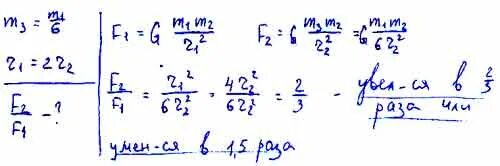 m₃ = m₁/6
r₁ = 2r₂
F₂/F₁ - ?
F₁ = G m₁m₂/r₁² F₂ = G m₃m₂/r₂² = G m₁m₂/6r₂²
F₂/F₁ = r₁²/6r₂² = 4r₂²/6r₂² = 2/3 - увел-ся в 2/3
раза или
умен-ся в 1,5 раза